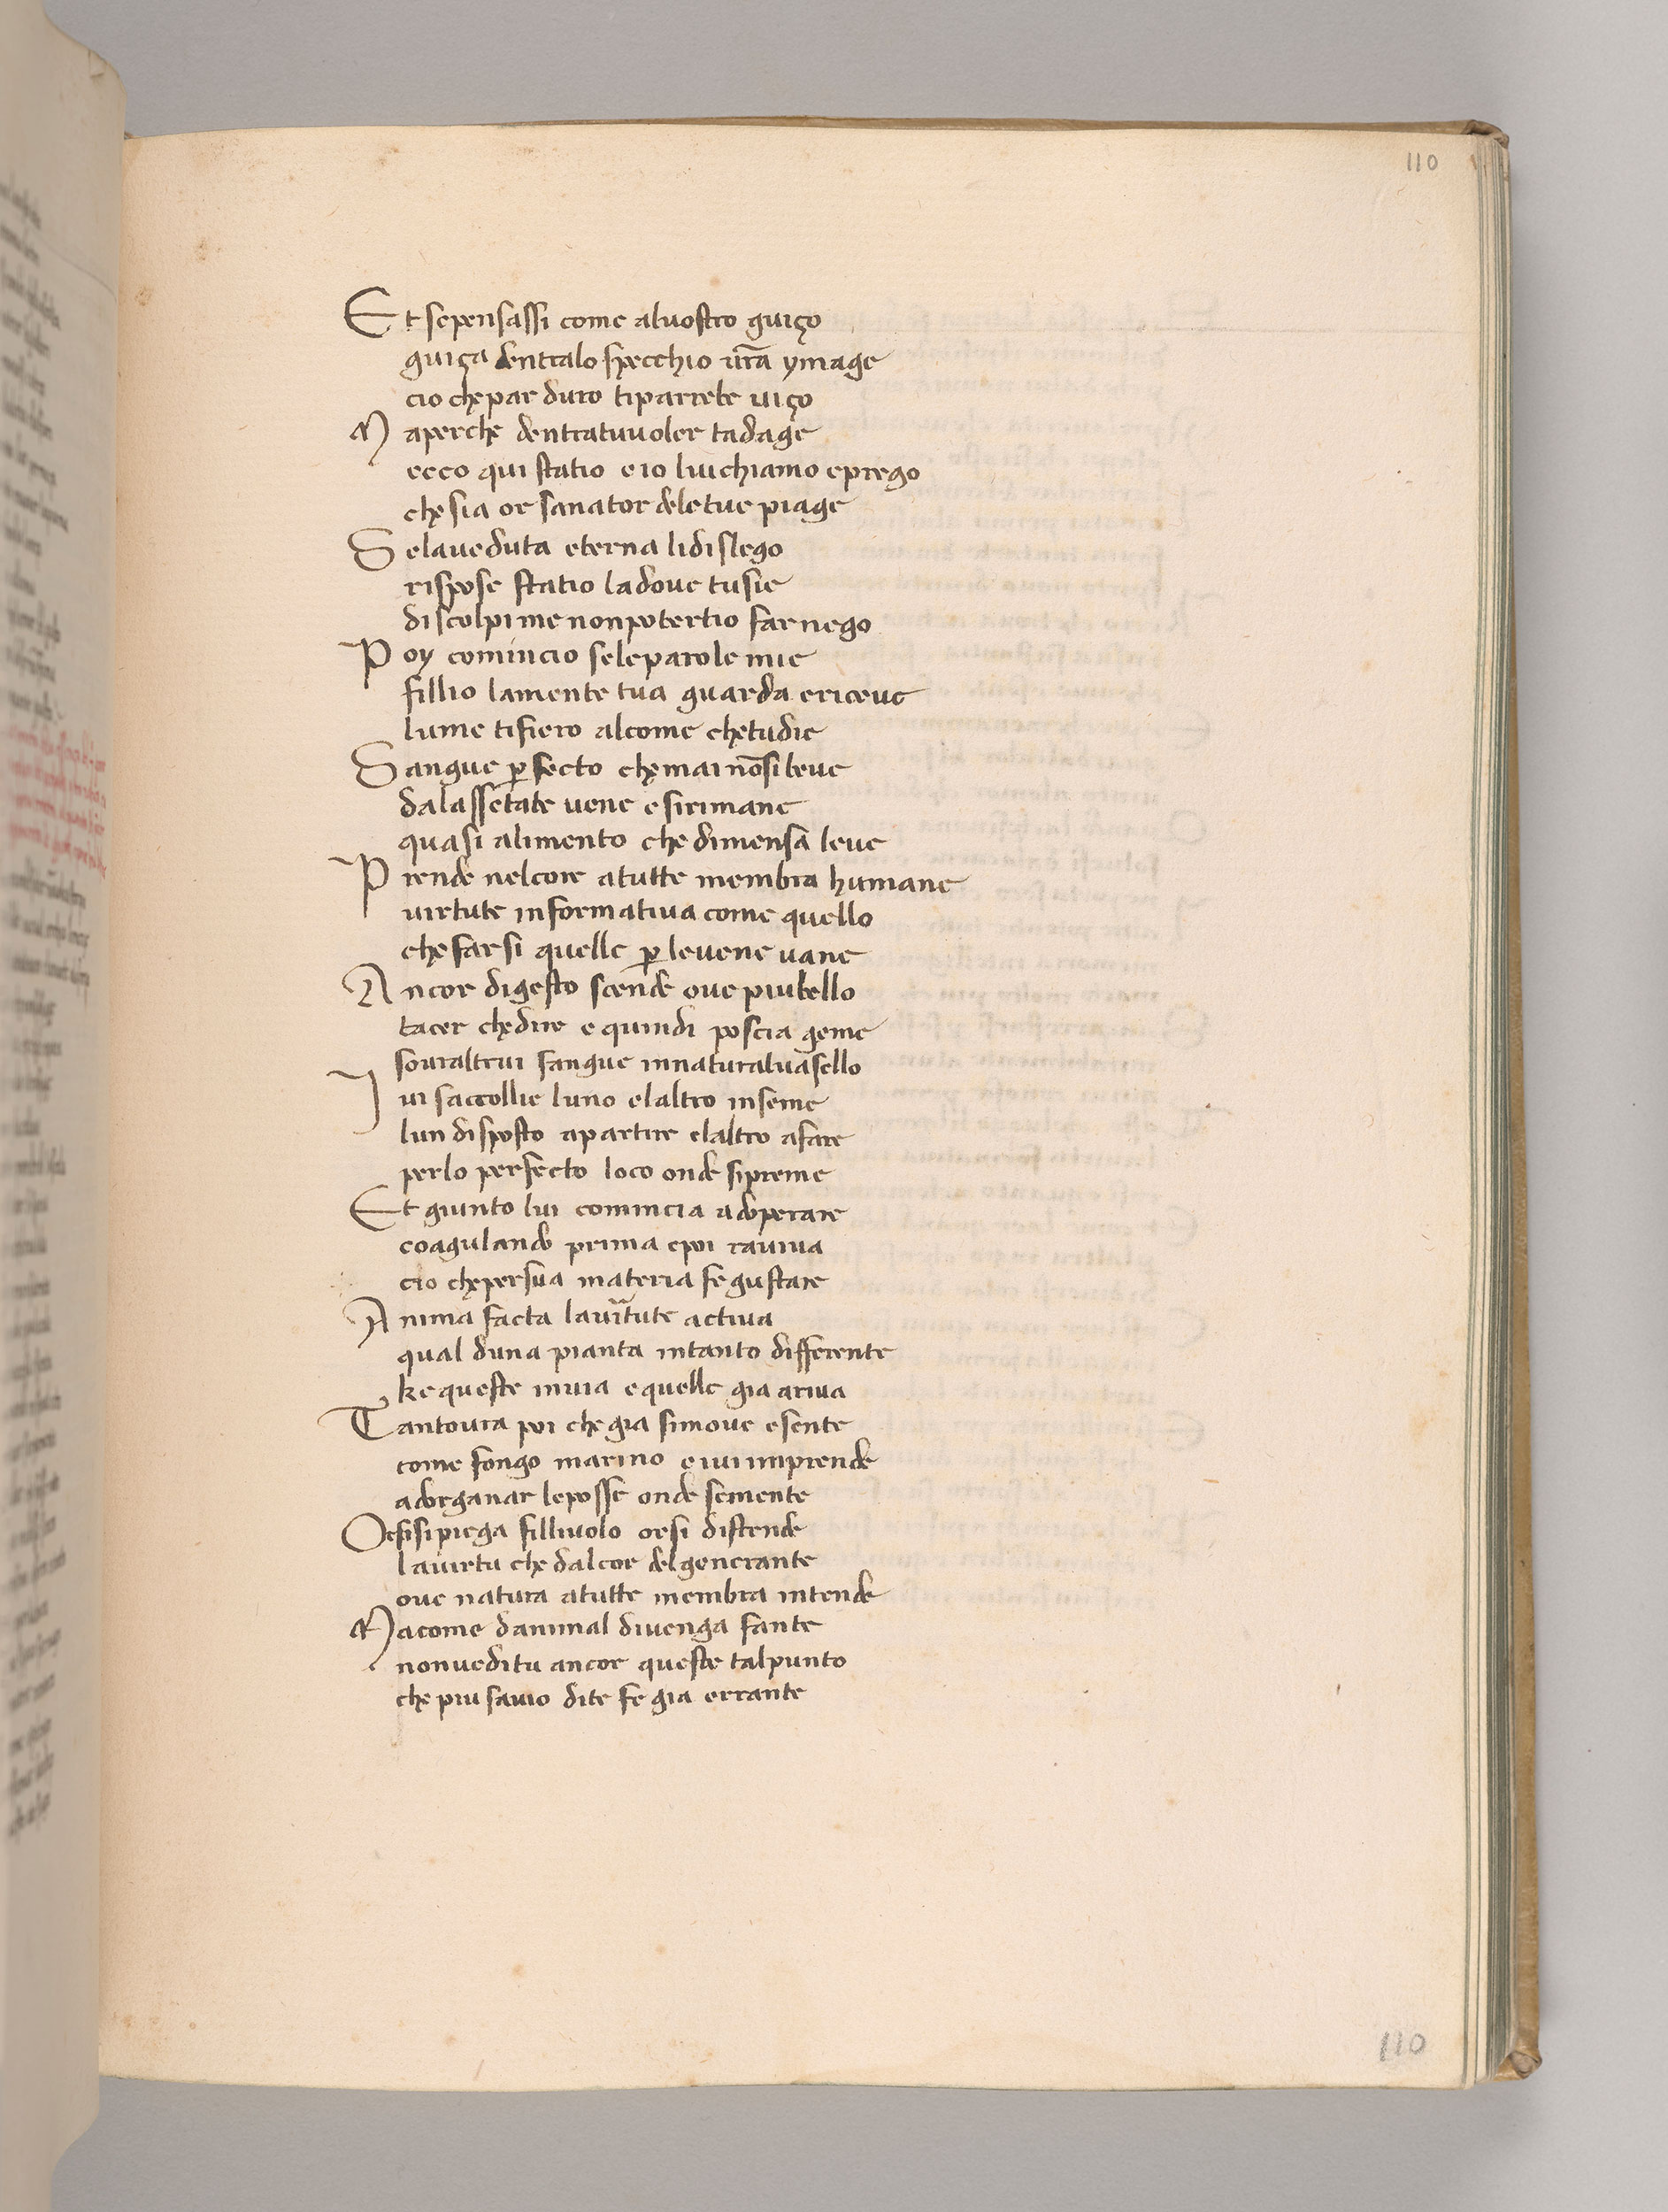 110
Et sepensassi come aluostro guiço
guiça dentralo specchio ur̃a ymage
cio chepar duro tiparrebe uiço
Ma perche dentratuuoler tadage
ecco qui statio e io lui chiamo eprego
che sia or sanator deletue piage
Se laueduta eterna lidislego
rispose statio ladoue tusie
discolpi me nonpotertio far nego
Poy comincio seleparole mie
fillio lamente tua guarda ericeue
lume tifiero alcome chetudie
Sangue ꝑfecto chemai nõsi beue
dalassetate uene e sirimane
quasi alimento che dimensa leue
Prende nelcore a tutte membra humane
uirtute informatiua come quello
che farsi quelle ꝑ leuene uane
Ancor digesto scende oue piubello
tacer chedire e quindi poscia geme
souraltrui sangue innaturaluasello
Iui saccollie luno elaltro inseme
lun disposto apartire elaltro afare
perlo perfecto loco onde sipreme
Et giunto lui comincia adoperare
coagulando prima epoi rauiua
cio chepersua materia fe gustare
Anima facta lauĩtute actiua
qual duna pianta intanto differente
ke queste inuia e quelle gia ariua
Tantoura poi che gia simoue esente
come fongo marino e iui imprende
adorganar leposse onde semente
Orsisipiega filliuolo orsi distende
lauirtu che dalcor delgenerante
oue natura atutte membra intende
Ma come danimal diuenga fante
nonueditu ancor queste talpunto
che piu sauio dite fe gia errante
110